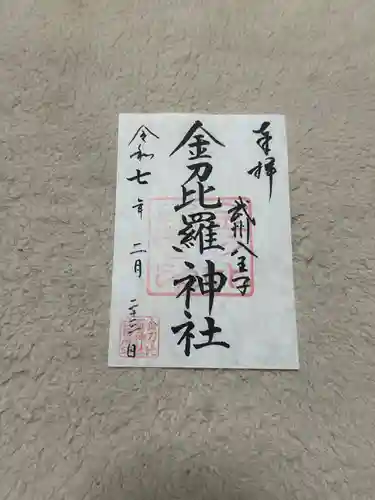 奉拝
武州八王子
金刀比羅神社
令和七年二月二十三日